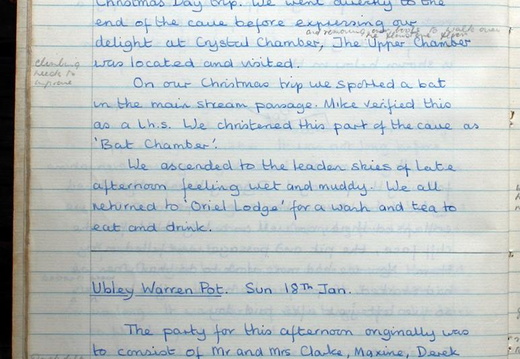 Christmas Day trip. We went directly to the
end of the cave before expressing our
delight at Crystal Chamber, The Upper Chamber
was located and visited.
climbing
needs to
improve
On our Christmas trip we spotted a bat
in the main stream passage. Mike verified this
as a l.h.s. We christened this part of the cave as
'Bat Chamber'.
We ascended to the leaden skies of late
afternoon feeling wet and muddy. We all
returned to 'Oriel Lodge' for a wash and tea to
eat and drink.
Ubley Warren Pot. Sun 18th Jan.
The party for this afternoon originally was
to consist of Mr and Mrs Clarke, Maxine, Derek